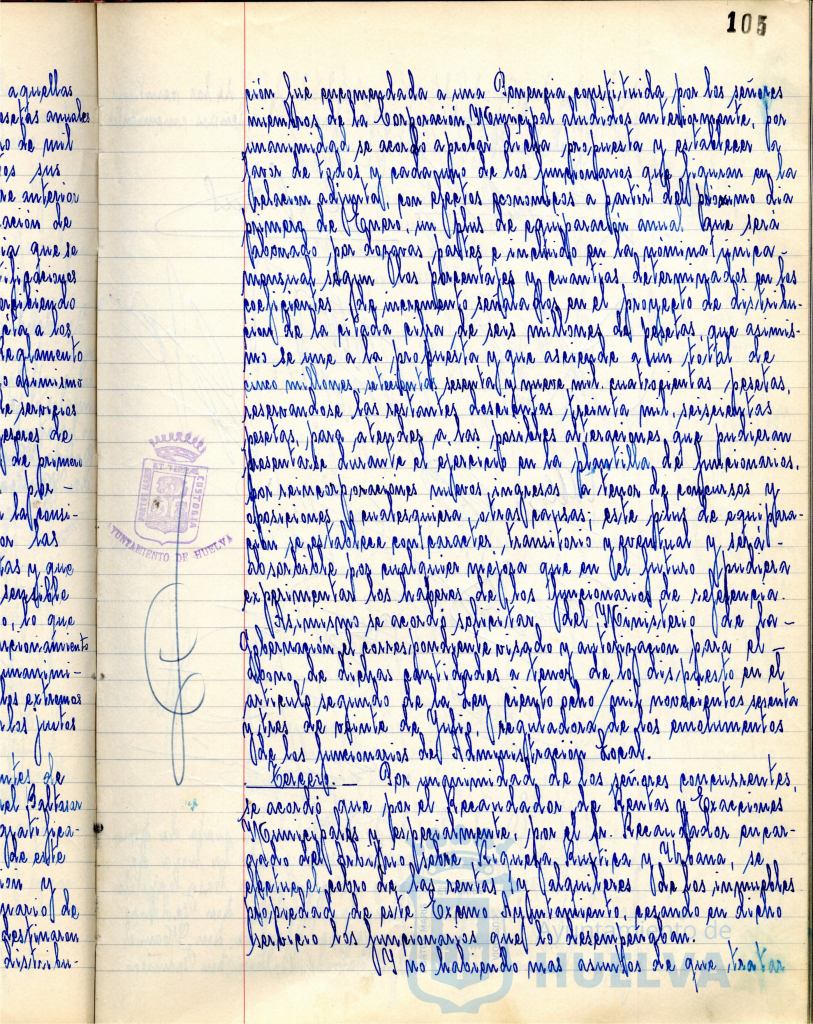 105
aquellas
pesetas anuales
o de mil
os sus
re anterior
ación de
ia que se
tificaciones
ercibiendo
ecta a los
Reglamento
o asimismo
de servicios
eseres de
y de primero
por -
a la consi-
or las
tas y que
sensible
o, lo que
uncionamiento
unanimi-
los extremos
los justos
ntes de
nel Baltasar
gratifica-
de este
ion y
nario de
destinaron
distribu-
ción fué encomendada a una Ponencia, constituida por los señores
miembros de la Corporación Municipal aludidos anteriormente, por
unanimidad se acordó aprobar dicha propuesta y establecer a
favor de todos y cada uno de los funcionarios que figuran en la
relacion adjunta, con efectos economicos a partir del proximo dia
primero de Enero, un plus de equiparación anual que será
abonado por dozavas partes e incluido en la nómina unica -
mensual segun los porcentajes y cuantias determinados en los
coeficientes de incremento señalados en el proyecto de distribu-
ción de la citada cifra de seis millones de pesetas, que asimis-
mo se une a la propuesta y que asciende a un total de
cinco millones, setecientas sesenta y nueve mil cuatrocientas pesetas,
reservandose las restantes doscientas treinta mil, seiscientas
pesetas, para atender a las posibles alteraciones que pudieran
presentarse durante el ejercicio en la plantilla de funcionarios,
por reincorporaciones nuevos ingresos a tenor de concursos y
oposiciones o cualesquiera otras causas; este plus de equipara-
ción se establece con caracter transitorio y eventual y será -
absorbible por cualquier mejora que en el futuro pudiera
experimentar los haberes de los funcionarios de referencia.
Asimismo se acordó solicitar del Ministerio de la -
Gobernación el correspondiente visado y autorizacion para el -
abono de dichas cantidades a tenor de lo dispuesto en el
articulo segundo de la Ley ciento ocho mil novecientos sesenta
y tres de veinte de Julio, reguladora de los emolumentos
de los funcionarios de Administración Local.
Tercero. - Por unanimidad de los señores concurrentes,
se acordó que por el Recaudador de Rentas y Exacciones
Municipales y especialmente, por el sr. Recaudador encar-
gado del Arbitrio sobre Riqueza Rustica y Urbana, se
efectue el cobro de las rentas y alquileres de los inmuebles
propiedad de este Excmo Ayuntamiento, cesando en dicho
servicio los funcionarios que lo desempeñaban.
Y no habiendo mas asuntos de que tratar
AYUNTAMIENTO DE HUELVA
CUSTODIA
Ayuntamiento de
HUELVA